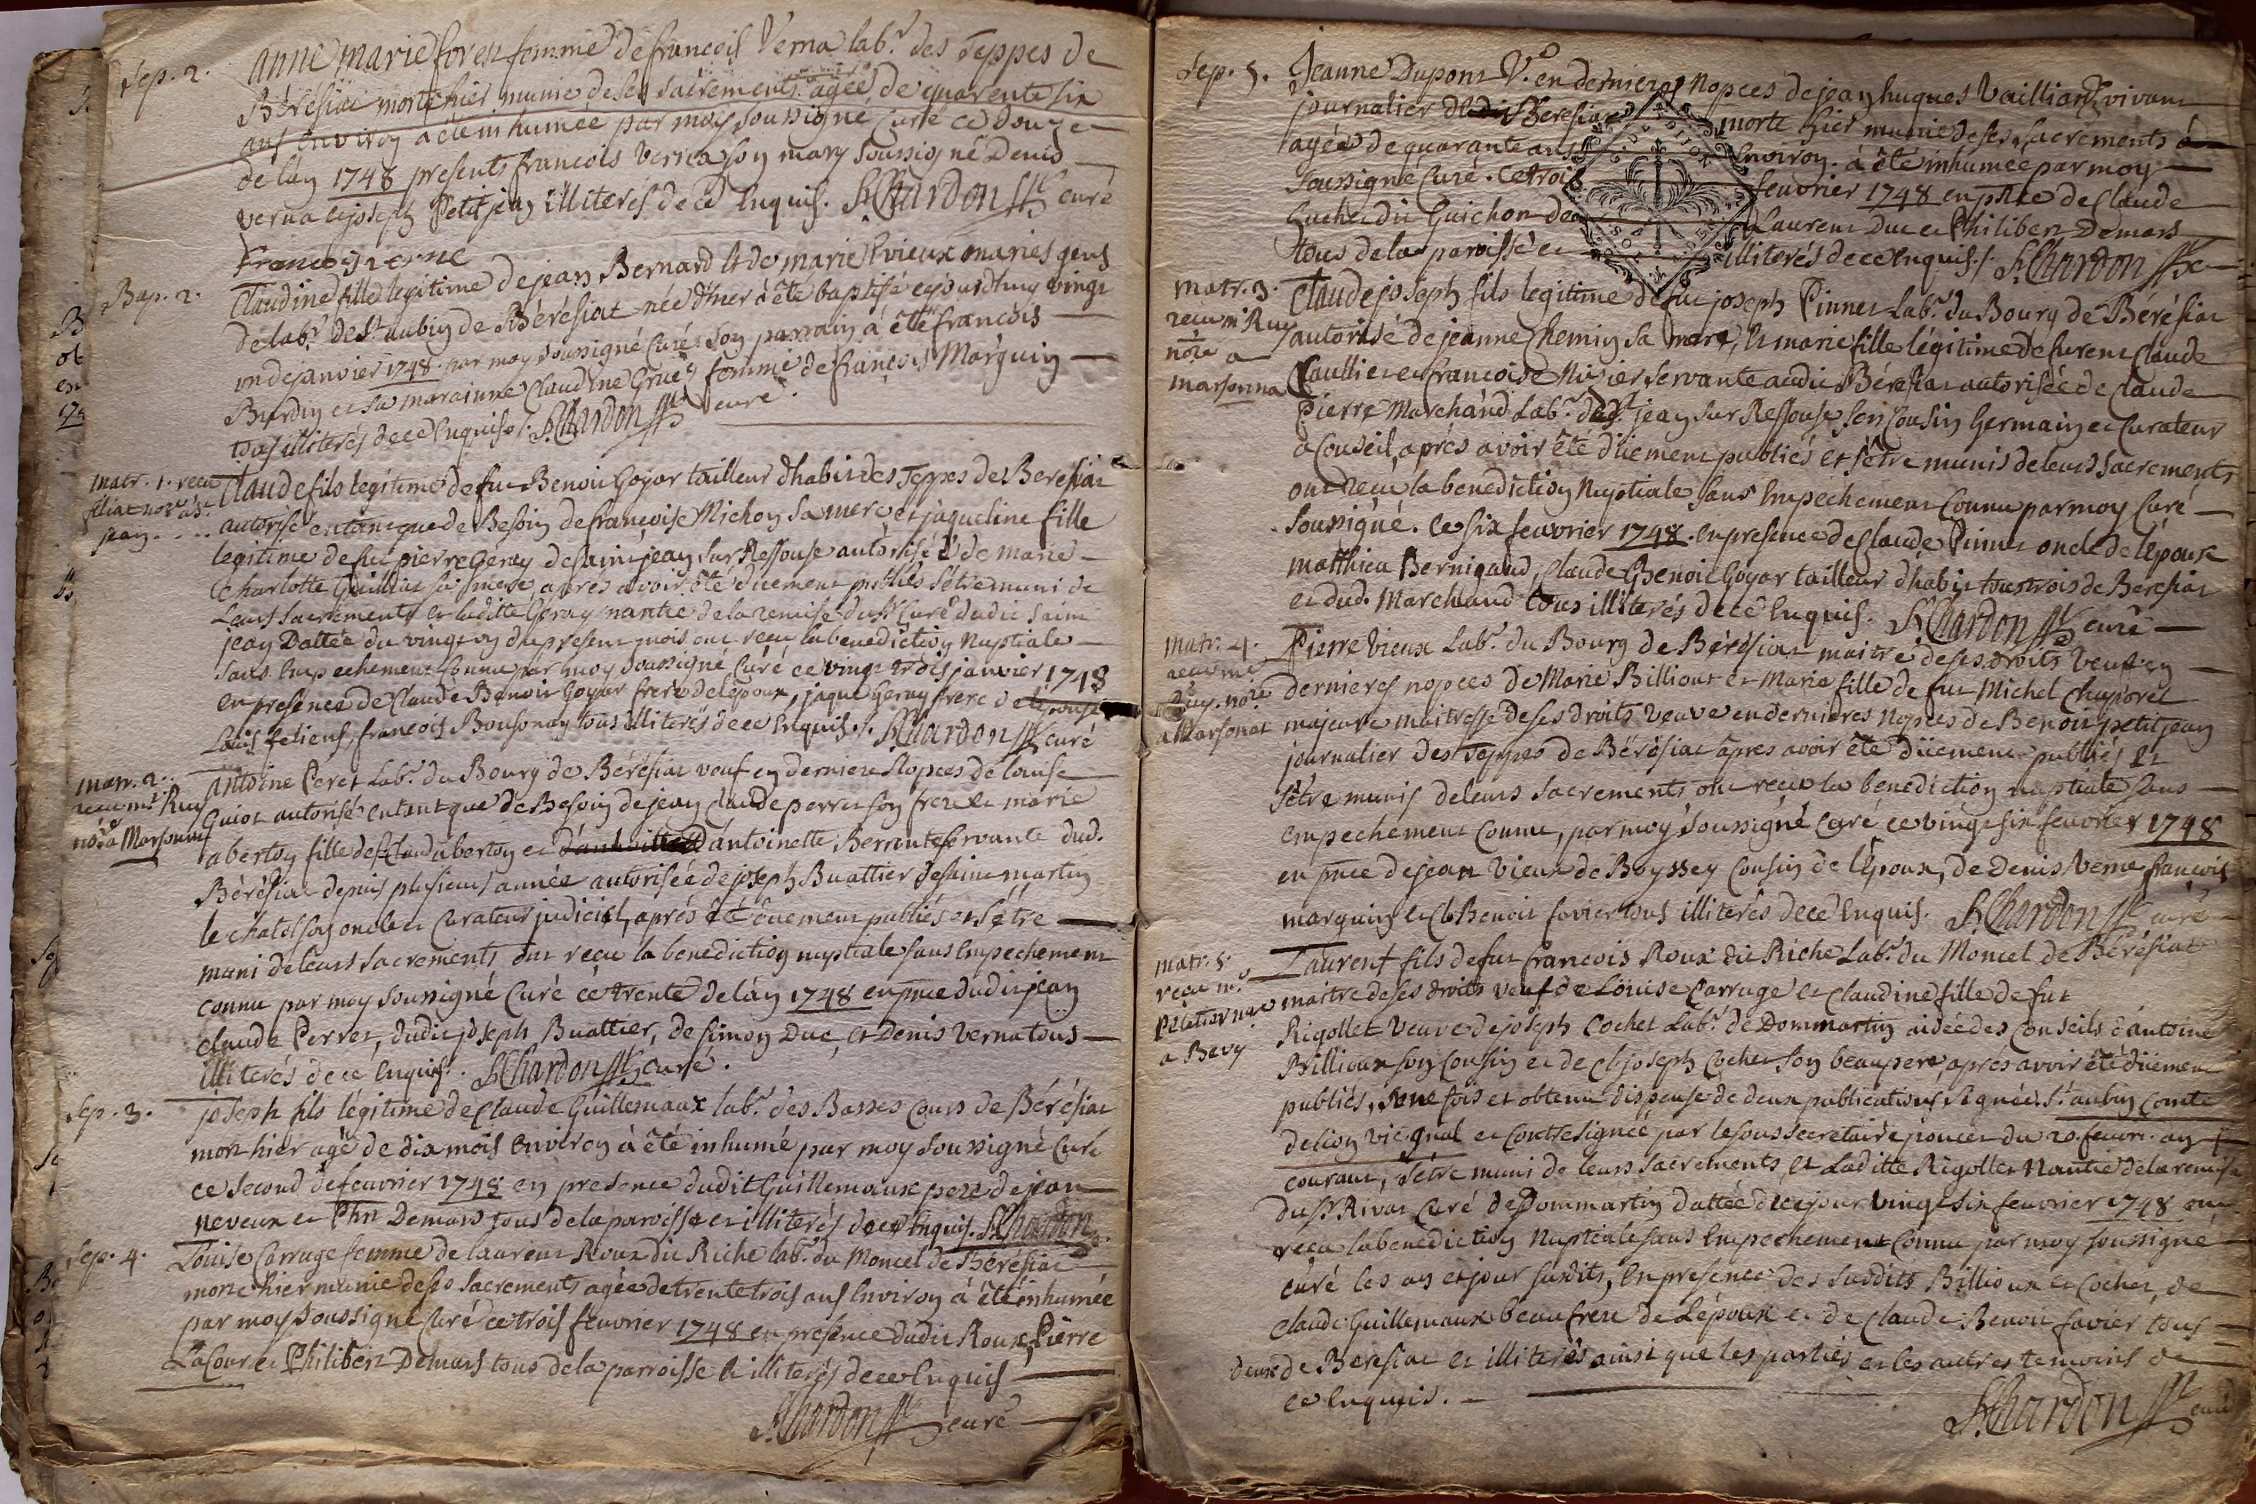 Sep. 2.
anne marie forest femme de francois Verna lab.r des Teppes de
Bérésiat morte hier munie de ses sacrements agée de quarente six
ans Environ à été inhumée par moy soussigné Curé ce douze
de lan 1748 presents francois verna son mary soussigné Denis
verna et joseph Petitjean illiterés de ce Enquis. Chardon curé
francoy verne
Bap. 2.
Claudine fille legitime de jean Bernard et de marie Vieux mariés gens
de lab.r de St aubin de Bérésiat née d'hier à été baptisé ejourdhuy vingt
un de janvier 1748. par moy soussigné Curé son parrain à été francois
Burdin et sa marainne Claudine femme de francois Marguin
tous illiterés de ce Enquis. Chardon curé.
matr. 1. recu
not.re a St
jean
Claude fils legitime de fut Benoit Goyar tailleur dhabit des Teppes de Beresiat
autorisé entant que de Besoin de francoise Michon sa mere et jaqueline fille
legitime de fut pierre Geray de saint jean sur Ressouse autorisé de marie
Charlotte Guilliat sa mere, apres avoir été düement publiés s'étre muni de
Leurs sacrements et laditte Geray nantie de la remise du Sr Curé dudit Saint
jean Dattée du vingt un du present mois ont recu la benediction Nuptiale
sans Empechement connu par moy soussigné Curé ce vingt trois janvier 1748
en presence de Claude Benoit Goyar frere de l'époux, jaque Geray frere de l'epouse
Louis francois tous illiterés de ce Enquis. Chardon curé
matr. 2.
recu m.e Ruy
no.re a Marsonnas
Antoine Peret Lab.r du Bourg de Bérésiat veuf en derniere Nopces de louise
Guiot autorisé entant que de Besoin de jean Claude perret son frere et marie
aberton fille de Claud aberton et d'antoinette servante dud.
Bérésiat depuis plusieurs année autorisée de joseph Buattier de saint martin
le chatel son oncle et Curateur judiciel, aprés été düement publiés et s'étre
muni de leurs sacrements ont réçu la benediction nuptiale sans Empechement
connu par moy soussigné Curé ce trente de lan 1748 en pnce dudit jean
claude Perret, dudit joseph Buattier, de simon Duc, et Denis Verna tous
illiterés de ce Enquis. Chardon curé.
Sep. 3.
joseph fils légitime de Claude Guillemaux lab.r des Basses Cours de Bérésiat
mort hier agé de dix mois Environ à été inhumé par moy soussigné Curé
ce second de fevrier 1748 en presence dudit Guillemaux pere de jean
neveux et Phn Demars tous de la paroisse et illiterés de ce Enquis. Chardon
Sep. 4.
Louise Carruge femme de laurent Roux dit Riche lab.r du Moncel de Bérésiat
morte hier munie de ses sacrements agée de trente trois ans Environ à été inhumée
par moy soussigné Curé ce trois fevrier 1748 en presence dudit Roux, Pierre
LaCour et Philibert Demars tous de la parroisse & illiterés de ce Enquis
Chardon curé
Sep. 5.
Jeanne Dupont V.e en dernieres Nopces de jean hugues Vailliant vivant
journalier dudit Beresiat morte hier munie de ses sacrements
agée de quarante ans Environ à été inhumée par moy
soussigné Curé. Ce trois fevrier 1748 en pnce de Claude
Guichon Laurent Duc et Philibert Demars
tous de la paroisse et illiterés de ce Enquis. Chardon
matr. 3.
recu m.e Ruy
no.re a
marsonna
Claude joseph fils legitime de fut joseph Pinnet Lab.r du Bourg de Bérésiat
autorisé de jeanne Chemin sa mere, et marie fille légitime de furent Claude
Caullier et francoise Nivier servante audit Bérésiat autorisée de Claude
Pierre Marchand Lab.r de St jean sur Ressouse son Cousin Germain et Curateur
a Conseil, aprés avoir été düement publiés et s'étre munis de leurs sacrements
ont reçu la benediction Nuptiale sans Empechement Connu par moy Curé
soussigné. Ce six fevrier 1748. en presence de Claude Pinnet oncle de l'époux
matthieu Bernigaud, Claude Benoit Goyar tailleur dhabit tous trois de Bérésiat
et dud. Marchand tous illiterés de ce Enquis. Chardon curé
matr. 4.
recu m.e
Ruy. no.re
a Marsonat
Pierre Vieux Lab.r du Bourg de Bérésiat maitre de ses droits veuf en
dernieres nopces de Marie Billiout et Marie fille de fut Michel Chuporet
majeure maitresse de ses droits veuve en dernieres Nopces de Benoit petitjean
journalier des Teppes de Bérésiat àpres avoir été düement publiés et
s'étre munis de leurs sacrements ont reçu la bénediction nuptiale sans
empechement Connu, par moy soussigné Curé ce vingt six fevrier 1748
en pnce de jean Vieux de Boyssey Cousin de l'Epoux, de Denis Verne francois
marguin et Cl Benoit favier tous illiterés de ce Enquis. Chardon curé
matr. 5.
recu m.e
Pelletier no.re
a Bevy
Laurent fils de fut francois Roux dit Riche Lab.r du Moncel de Bérésiat
maitre de ses droits veuf de Louise Carruge et Claudine fille de fut
Rigollet veuve de joseph Cochet Lab.r de Dommartin aidée des Conseils d'antoine
Billioux son Cousin et de Cl joseph Cochet son beaupere, apres avoir été düement
publiés, une fois et obtenu dispense de deux publications signée. St aubin Comte
de lion vic gnal et Contresignée par le sous secretaire poncet du 20. fevr. an
courant, s'étre muni de leurs sacrements, et laditte Rigollet Nantie de la remise
du Sr Rivat Curé de Dommartin dattée de ce jour vingt six fevrier 1748 ont
reçu la benediction Nuptiale sans Empechement Connu par moy soussigné
curé les an et jour susdits, En presence des susdits Billioux et Cochet, de
Claude Guillemaux beaufrere de Lépoux et de Claude Benoit favier tous
deux de Beresiat et illiterés ainsi que les parties et les autres temoins de
ce Enquis.
Chardon curé